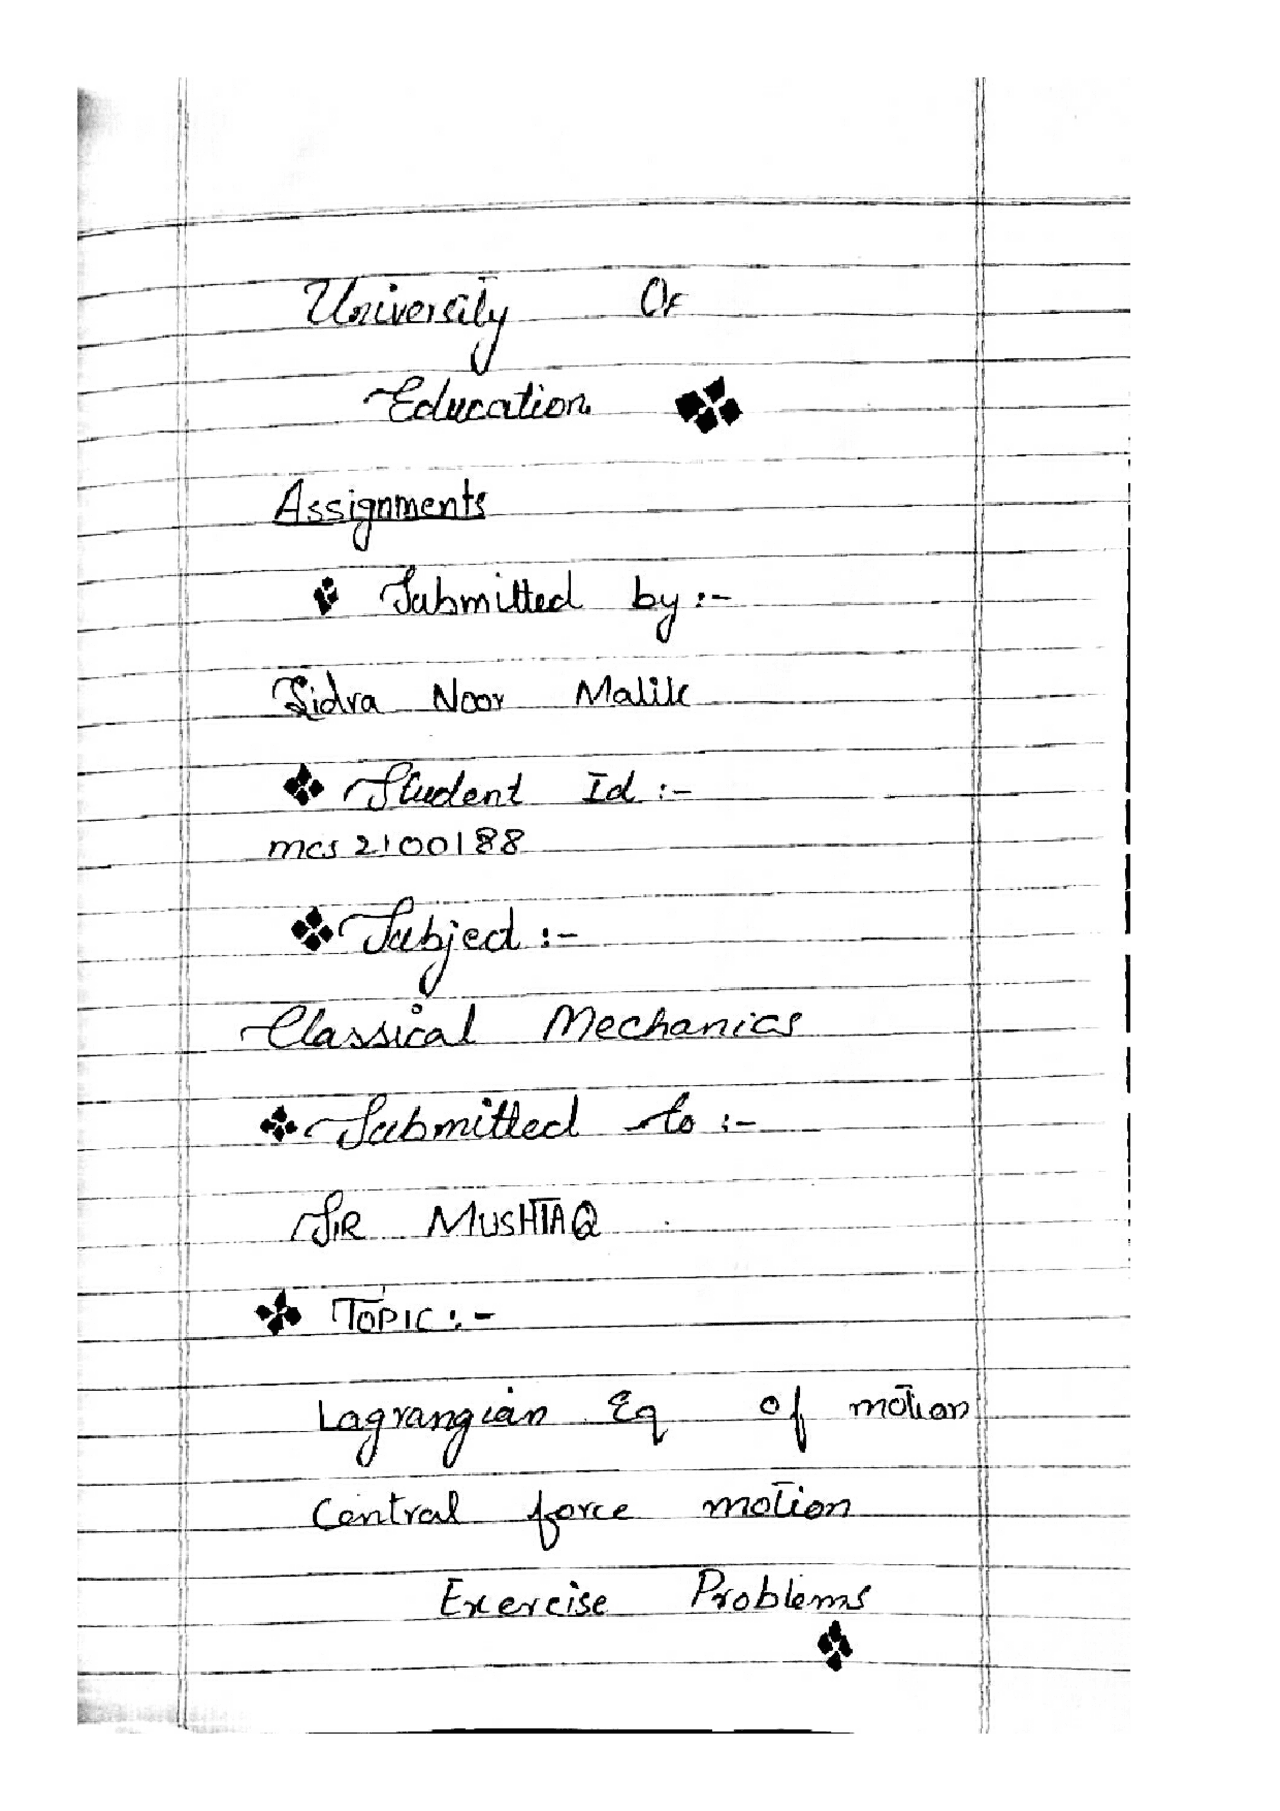 University Of
Education
Assignments
Submitted by :-
Sidra Noor Malik
Student Id :-
mcs 2100188
Subject :-
Classical Mechanics
Submitted to :-
SIR MUSHTAQ
TOPIC :-
Lagrangian Eq of motion
Central force motion
Exercise Problems